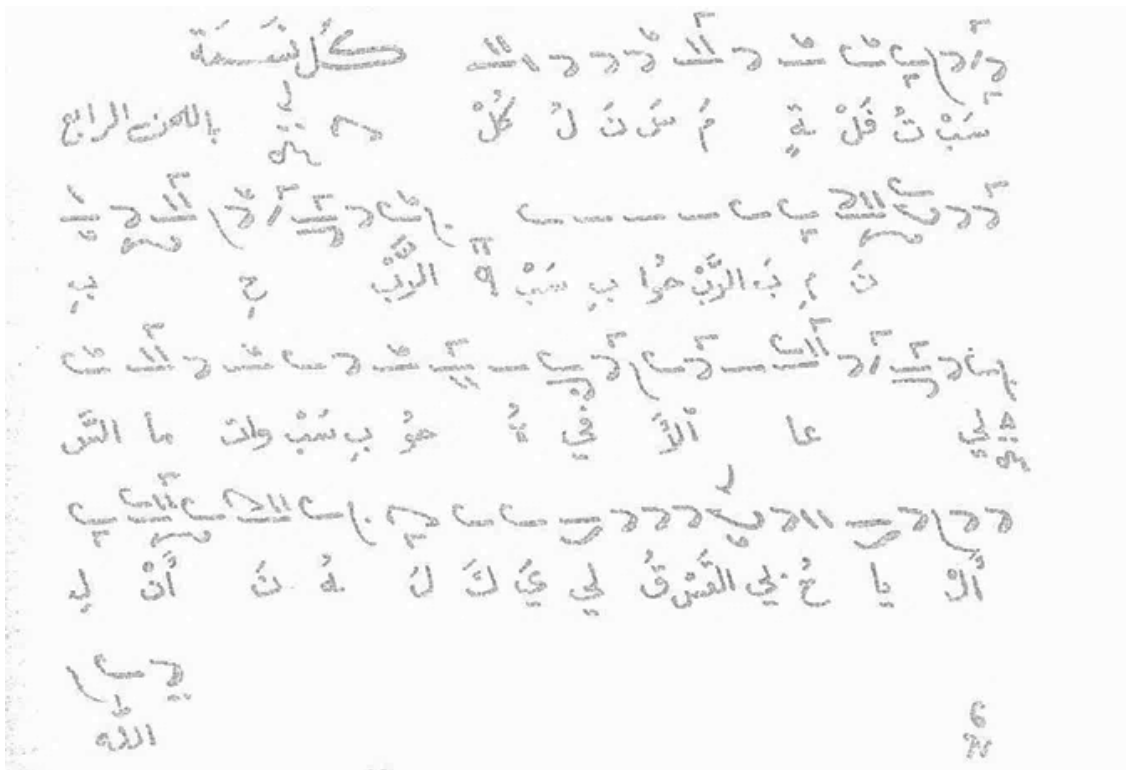 كُل نَسَمَة
باللحن الرابع
كُلْ لُ نَ سَ مَ ةٍ فَلْ تُ سَبْ
بِ حِ الرَّبْ سَبْ بِ حُوا الرَّبْ بَ مِ نَ
السَّ ما وات سَبْ بِ حُو هُ في الأَ عا لي
لِ أَنْ نَ هُ لَ كَ يَ لي قُ التَّسْ بي حُ يا أَلْ
الله